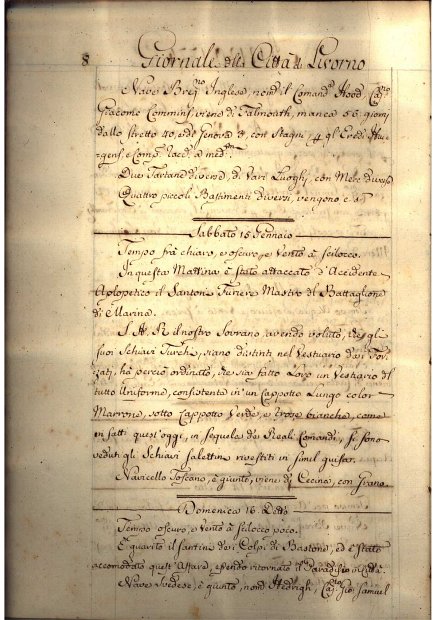 8 Giornale di Città di Livorno
Nave Breg.no Inglese, nom.il Comand.e Hood, Cap.no
Giacomo Commins viene di Falmouth, manca 56 giorni
dallo stretto 40, e da Genova 3, con Stagni, 4 gl'Eredi Hue-
gens, e Comp. Racc. a med.mi
Due Tartane diverse, di Vari Luoghi, con Merc. diverse
Quattro piccoli Bastimenti diversi, vengono c. s.a
Sabbato 15 Gennaio
Tempo frà chiaro, e oscuro, e Vento à scilocco.
In questa Mattina è stato attaccato d'Accidente
Aplopetico il Santoni Furiere Mastro del Battaglione
di Marina.
S. A. R. il nostro Sovrano, avendo voluto, che gl
suoi Schiavi Turchi, siano distinti nel Vestuario dai For-
zati, hà perciò ordinato, che sia fatto Loro un Vestiario del
tutto Uniforme, consistente in un Cappotto Lungo color
Marrone, sotto Cappotto Verde, e brose bianche, come
in fatti quest'oggi, in sequela dei Reali Comandi, si sono
veduti gli Schiavi Salettini rivestiti in simil guisa.
Navicello Toscano, è giunto, viene di Cecina, con Grano.
Domenica 16 Detto
Tempo oscuro, e Vento à scilocco poco.
E' guarito il fantini dei Colpi di Bastone, ed è stato
accomodato quest'Affare, essendo ritornato Paradisio in Città.
Nave Svedese, è giunto, nom. Hedvigh, Cap.no Gio. Samuel